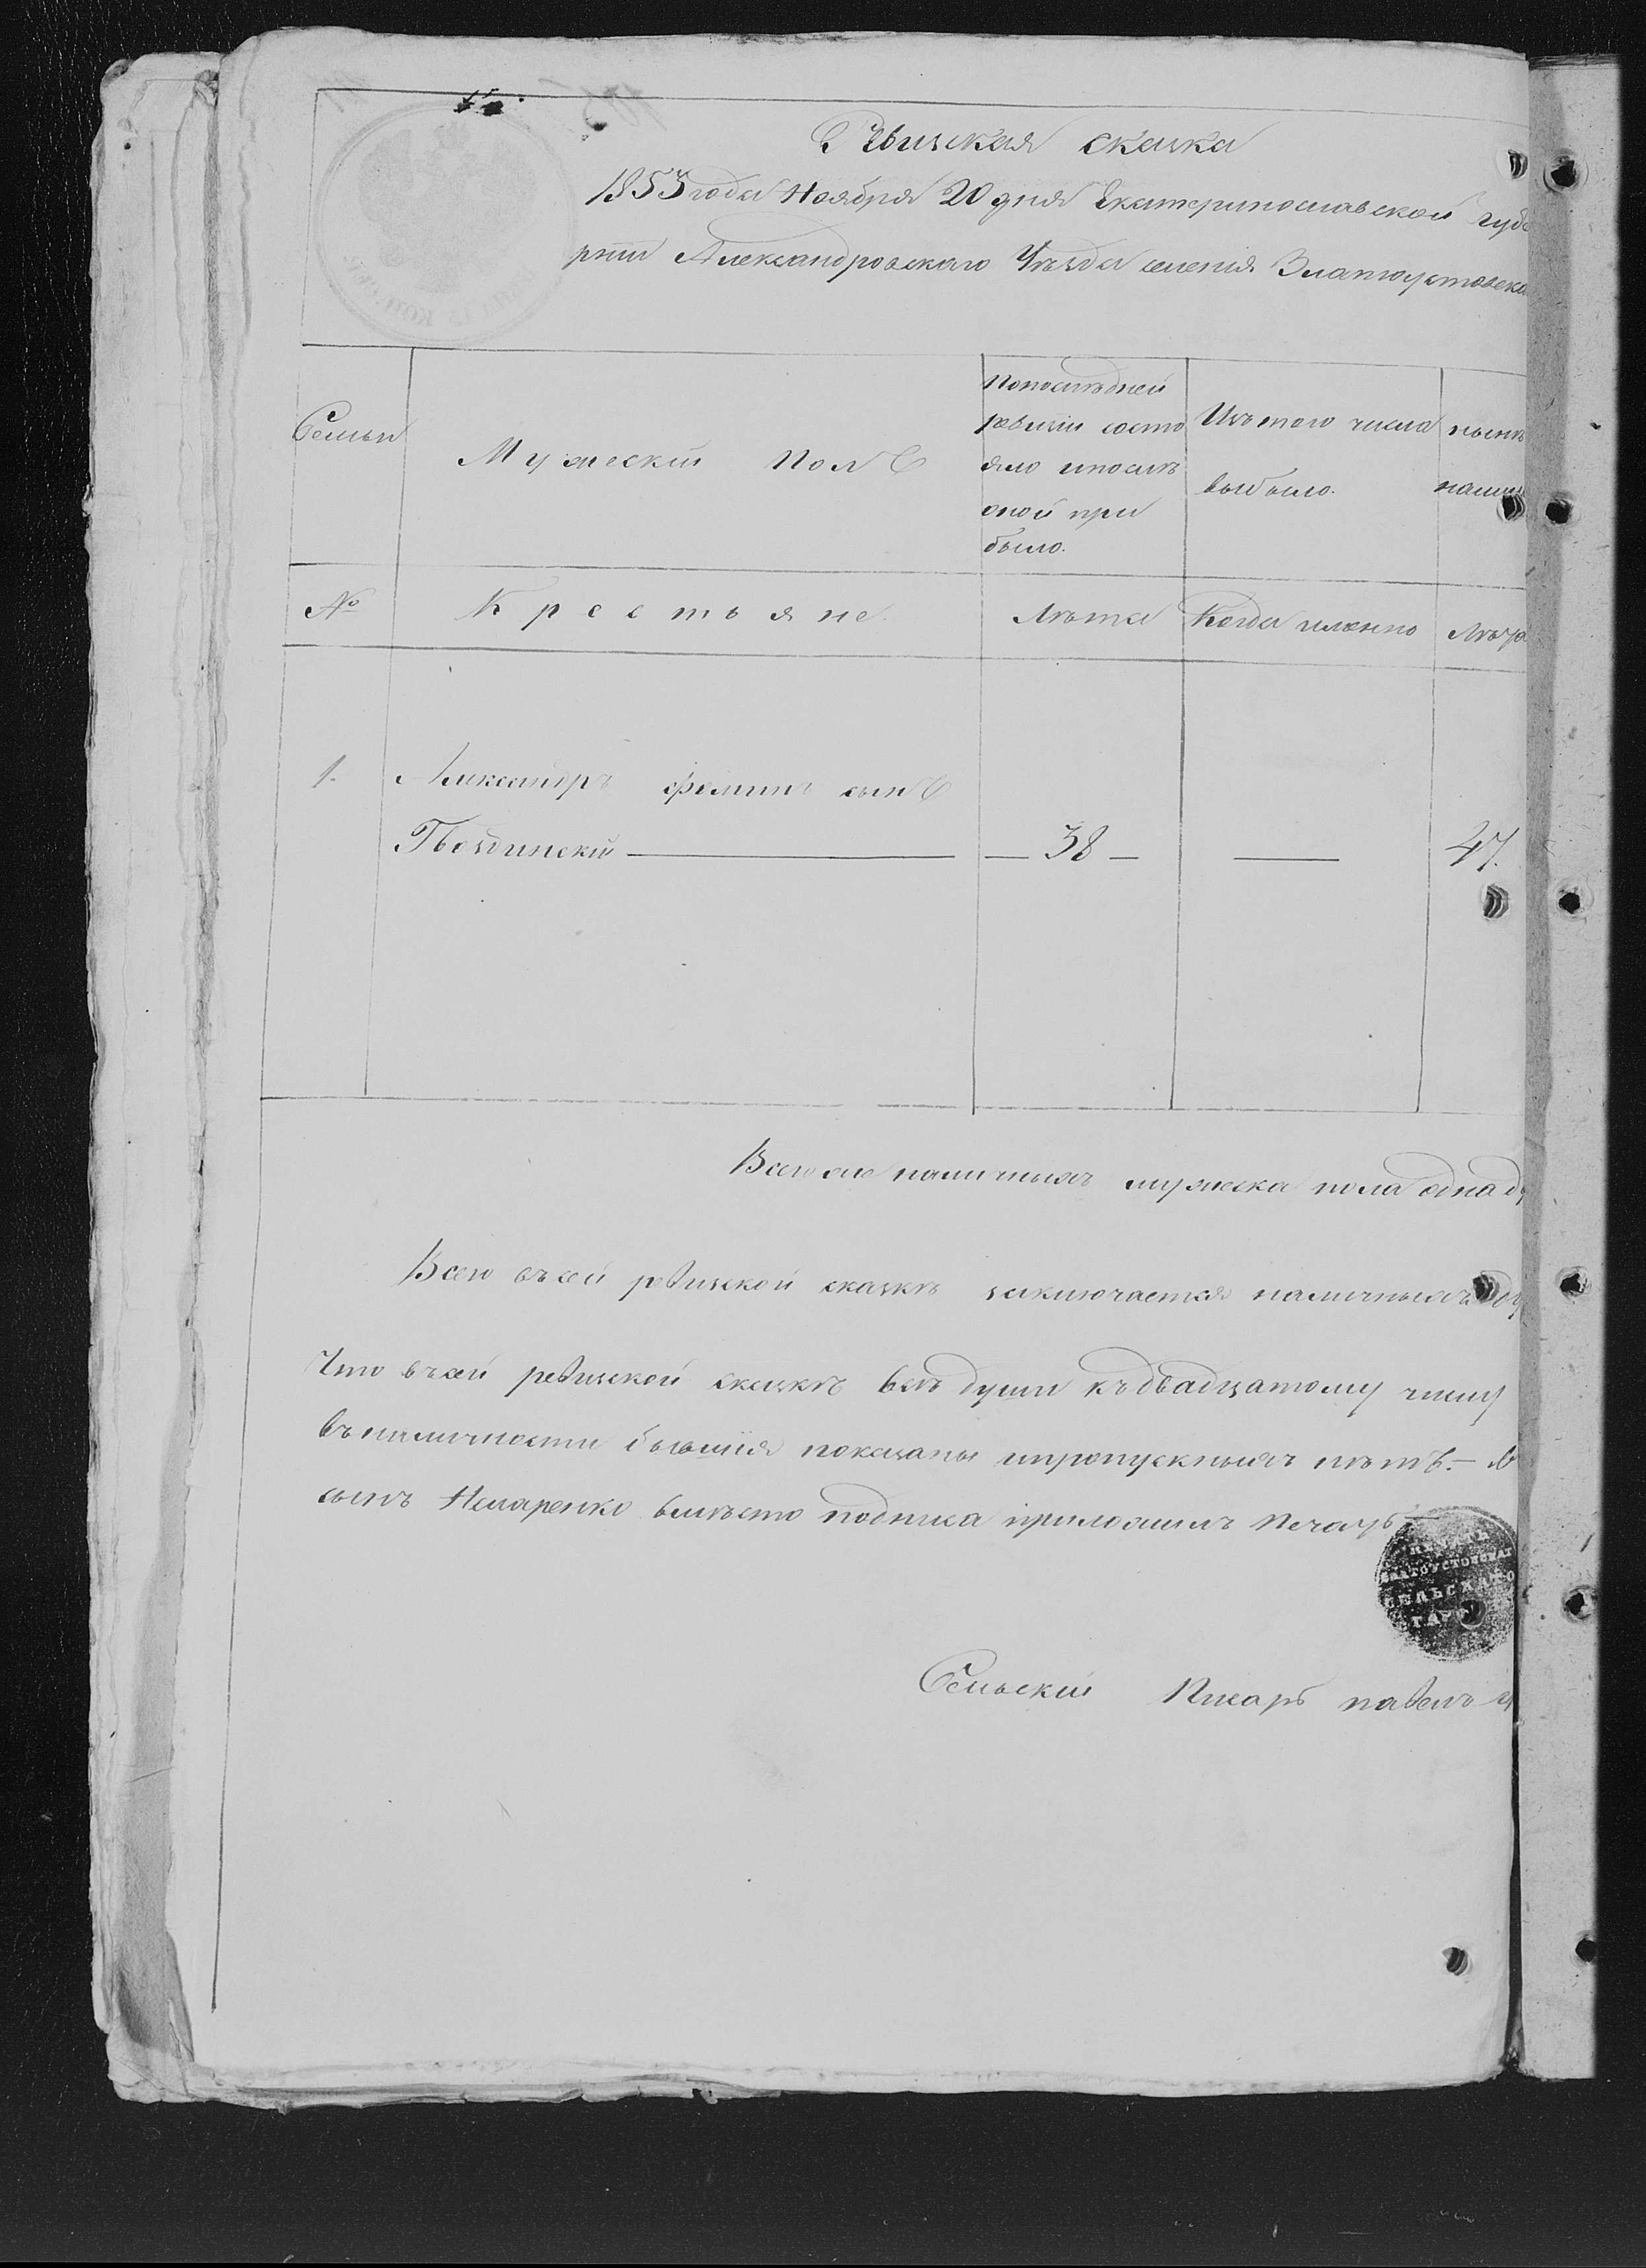 Ревизская сказка
1853 года Ноября 20 дня Екатеринославской губе
рнии Александровского Уѣзда селенія Златоустовска
Семьи
Мужескій Полъ
Попослѣдней
ревизіи состо
яло ипослѣ
оной при
было.
Изътого числа
выбыло.
нынѣ
налиц
№
Крестьяне
Лѣта
Когда именно
Лѣта
1.
Александръ Фоминъ сынъ
Гвоздинскій — 38 — — 47.
Всего же наличныхъ мужеска пола одна д
Всего въсей ревизской сказкѣ заключается наличныхъ
Что въсей ревизской сказкѣ всѣ души къдвадцатому числу
въналичности бывшія показаны ипропускныхъ нѣтъ. —
сынъ вмѣсто подписа приложилъ Печать —
ЗЛАТОУСТОВСКАГ
СЕЛЬСКАГО
Сельскій Писарь павелъ